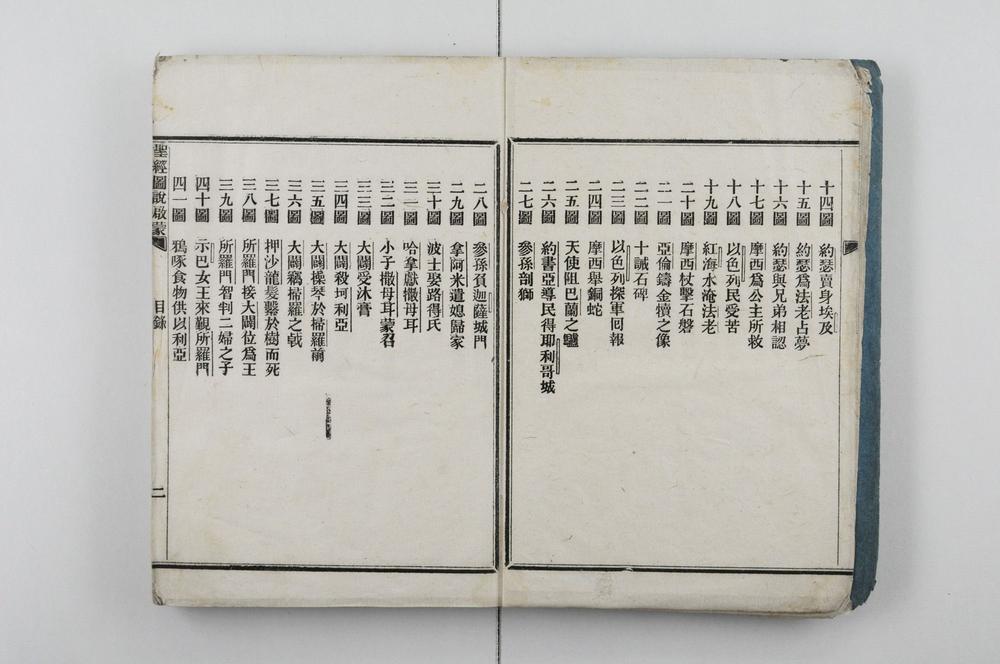 十四圖 約瑟賣身埃及
十五圖 約瑟爲法老占夢
十六圖 約瑟與兄弟相認
十七圖 摩西爲公主所救
十八圖 以色列民受苦
十九圖 紅海水淹法老
二十圖 摩西杖擊石磐
二一圖 亞倫鑄金犢之像
二二圖 十誡石碑
二三圖 以色列探軍囘報
二四圖 摩西舉銅蛇
二五圖 天使阻巴蘭之驢
二六圖 約書亞導民得耶利哥城
二七圖 參孫剖獅
二八圖 參孫負迦薩城門
二九圖 拿阿米遣媳歸家
三十圖 波士娶路得氏
三一圖 哈拿獻撒母耳
三二圖 小子撒母耳蒙召
三三圖 大闢受沐膏
三四圖 大闢殺坷利亞
三五圖 大闢操琴於掃羅前
三六圖 大闢竊掃羅之戟
三七圖 押沙龍髮繫於樹而死
三八圖 所羅門接大闢位爲王
三九圖 所羅門智判二婦之子
四十圖 示巴女王來覲所羅門
四一圖 鴉啄食物供以利亞
聖經圖說啟蒙 目錄 二